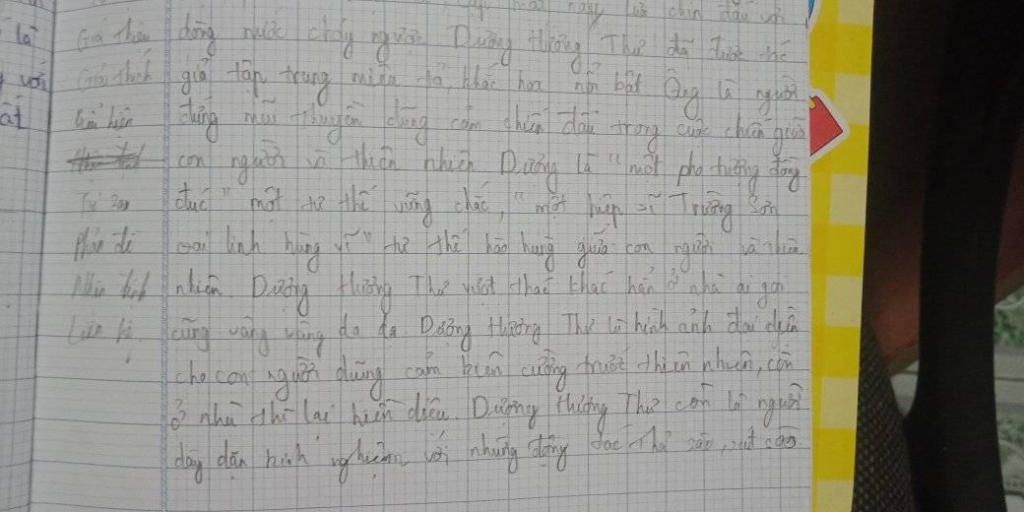 là Giải thích dòng nước chảy ngược Dượng Hương Thư đã được tác
với Giải thích giả tập trung miêu tả, khắc họa nổi bật Ông là người
ất đứng mũi thuyền dũng cảm chiến đấu trong cuộc chiến giữa
con người và thiên nhiên Dượng là "một pho tượng đồng
đúc" một tư thế vững chắc, "một hiệp sĩ Trường Sơn
oai linh hùng vĩ" tư thế hào hùng giữa con người và thiên
nhiên. Dượng Hương Thư vượt thác khác hẳn ở nhà ai gọi
Liên hệ. cũng vâng vâng dạ dạ. Dượng Hương Thư là hình ảnh đại diện
cho con người dũng cảm kiên cường trước thiên nhiên, còn
ở nhà thì lại hiền dịu. Dượng Hương Thư còn là người
dày dặn kinh nghiệm với những động tác thả sào, rút sào